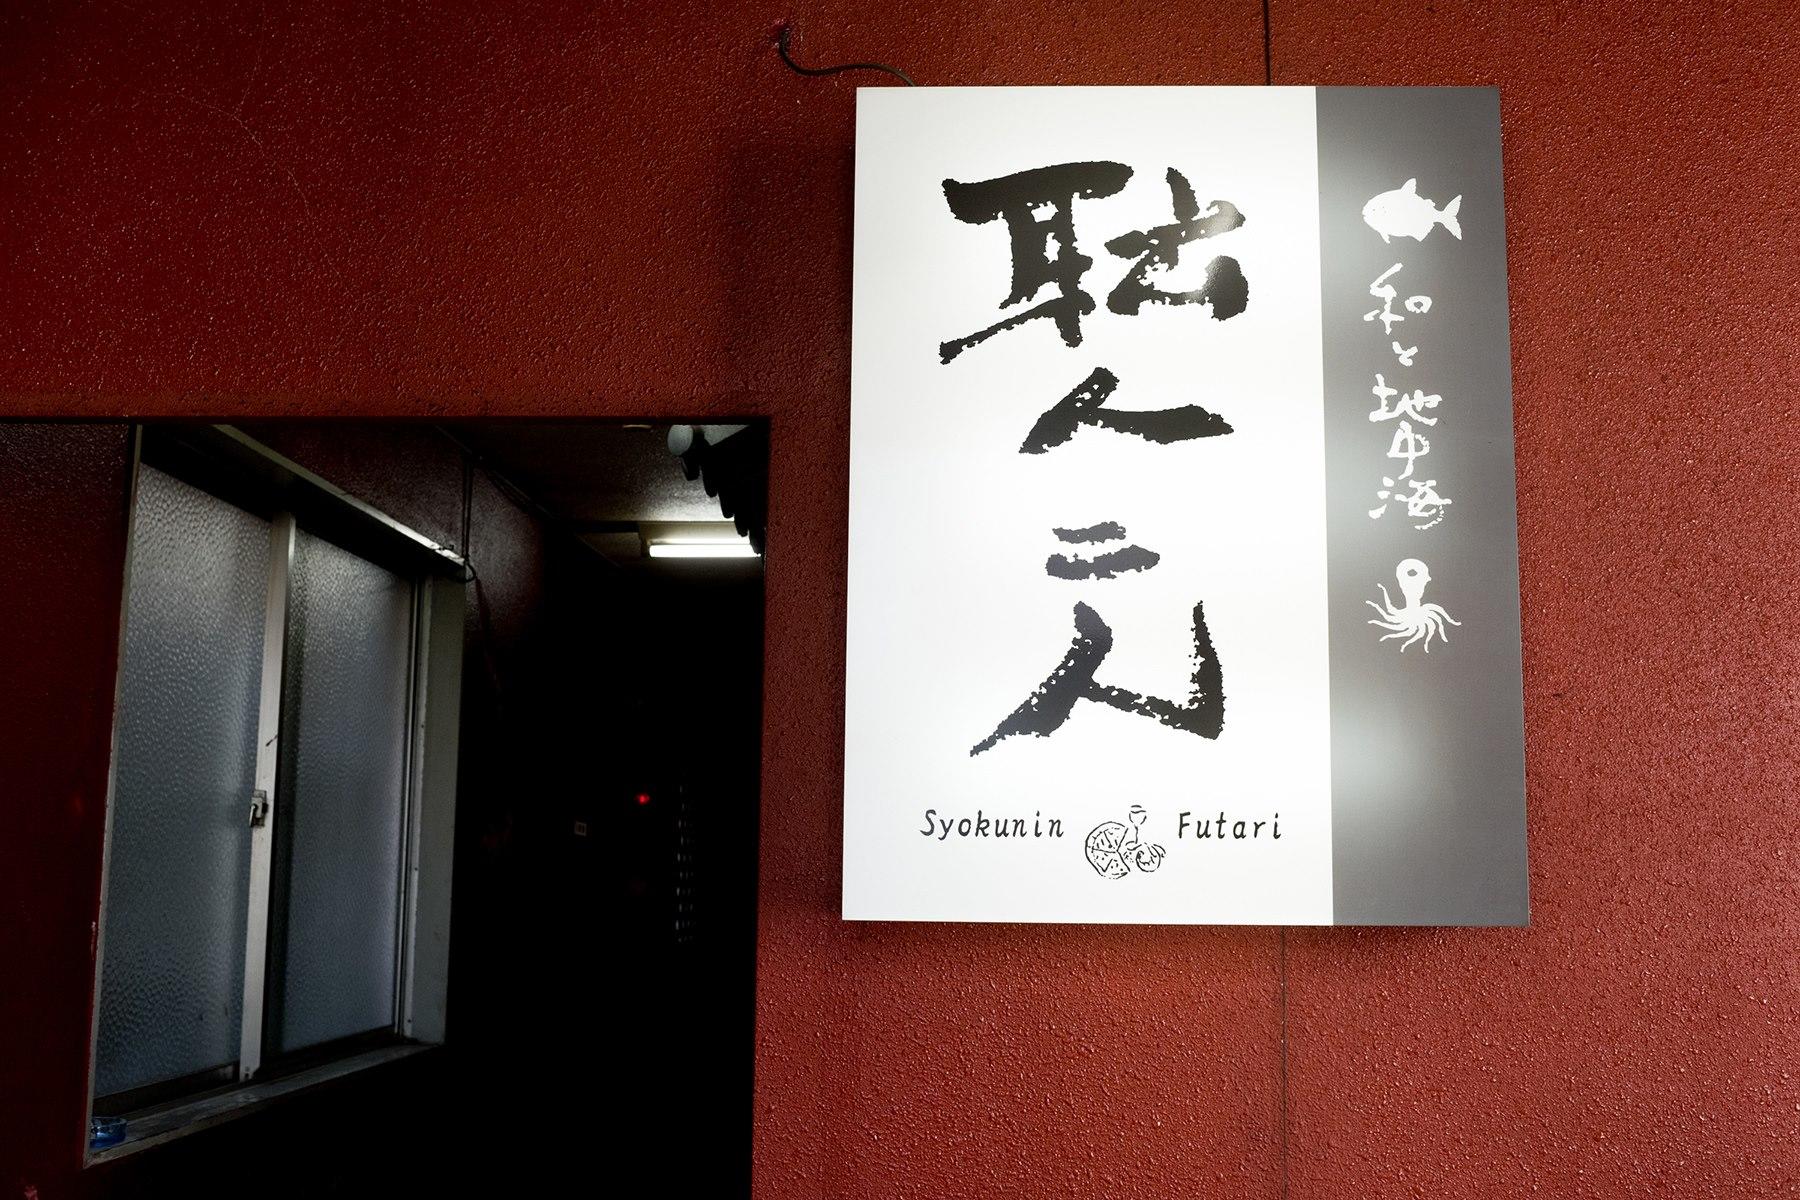 耺人二人
Syokunin Futari
和と地中海